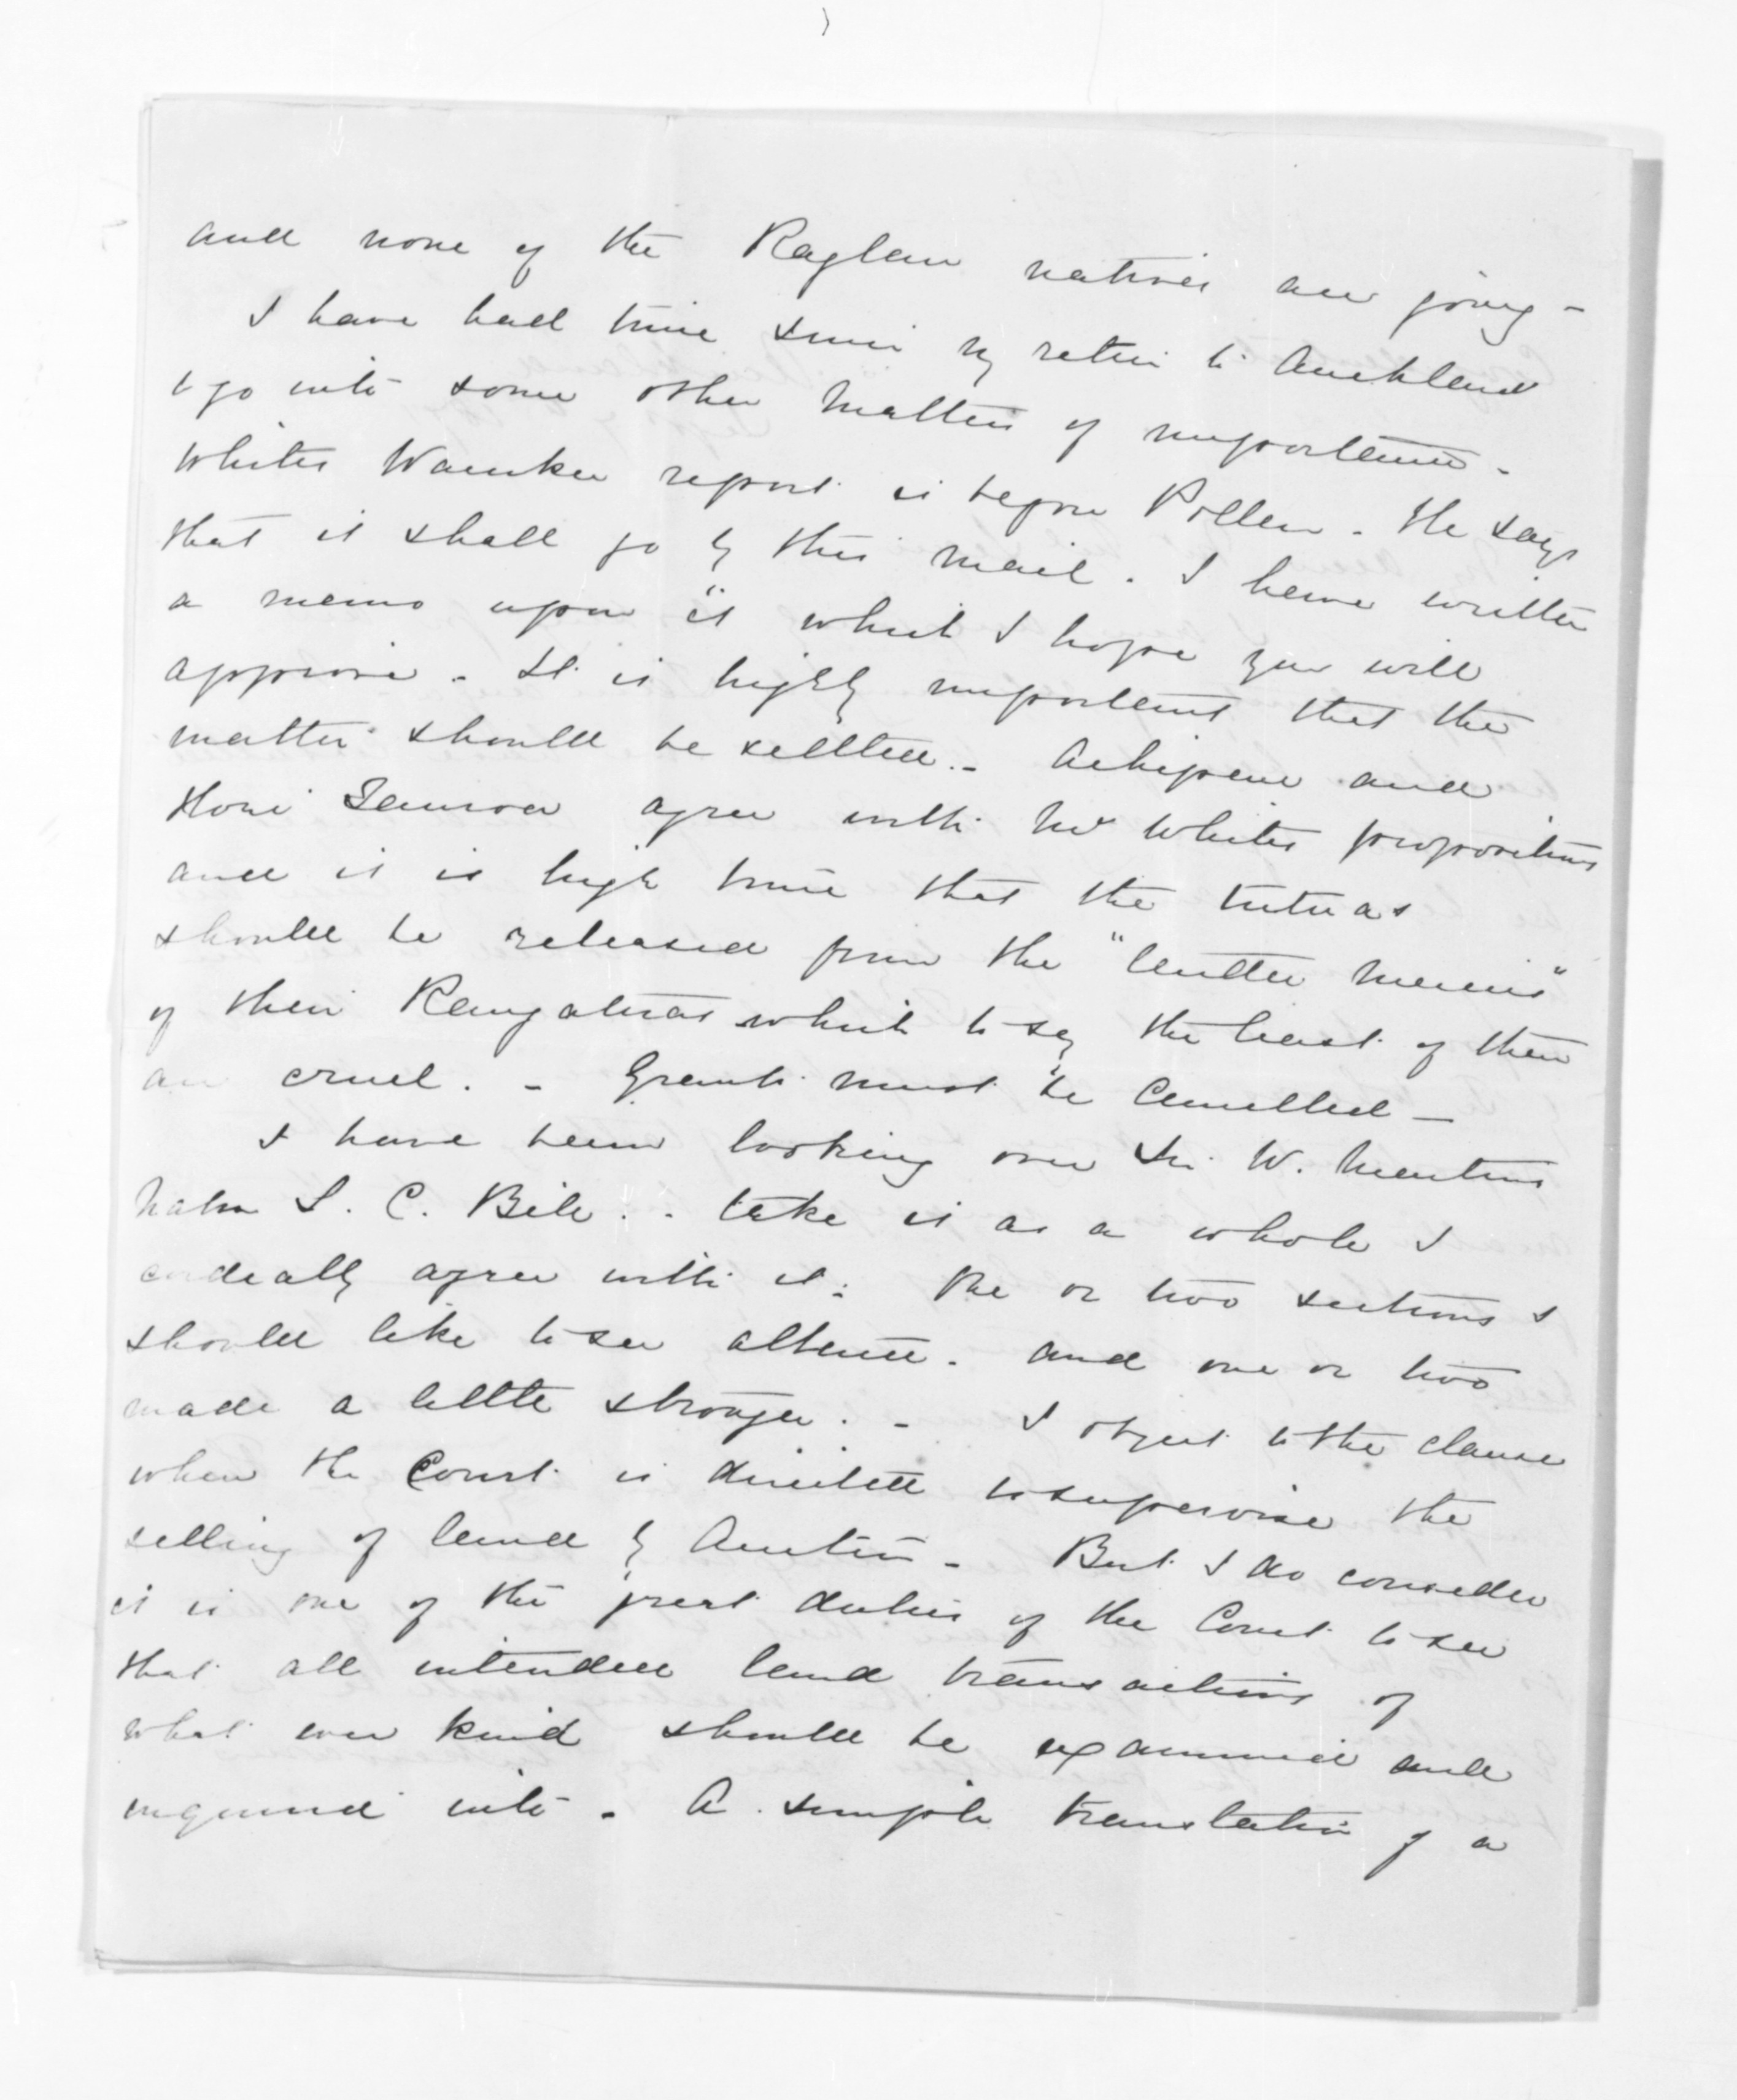 and none of the Raglan natives are going -
I have had time since my return to Auckland
to go into some other matters of importance -
Whites Wauku report is before Pollen - He says
that it shall go by this mail. I have written
a memo upon it which I hope you will
approve - It is highly important that the
matter should be settled. - Aihepene and
Hori Tauroa agree with Mr Whites propositions
and it is high time that the tutuas
should be released from the " mercies"
of their Rangatiras which to say the least of them
are cruel. - Grants must be Cancelled -
I have been looking over Sir W. Martins
Native L. C. Bill. - take it as a whole I
cordially agree with it: One or two sections I
should like to see altered - and one or two
made a little stronger. - I object to the clause
when the Court is directed to supervise the
selling of land by Auction - But I do consider
it is one of the great duties of the Court to see
that all intended land transactions of
what ever kind should be examined and
inquired into - A simple translation of a